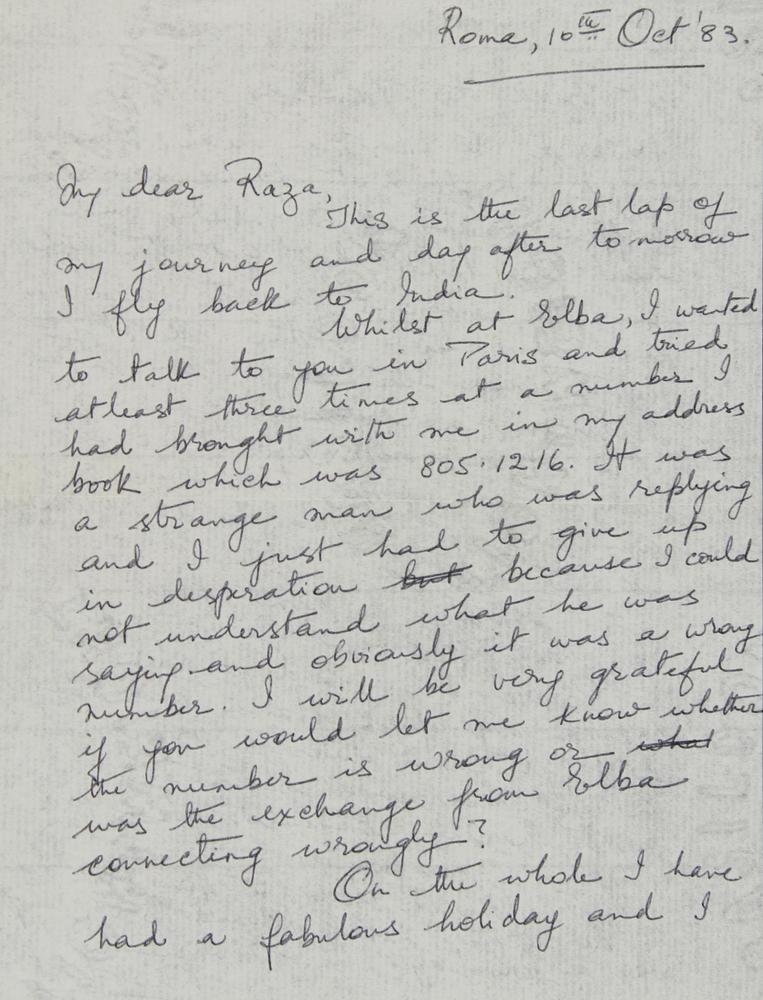 Roma, 10th Oct '83.
My dear Raza,
This is the last lap of
my journey and day after tomorrow
I fly back to India.
Whilst at Elba, I wanted
to talk to you in Paris and tried
atleast three times at a number I
had brought with me in my address
book which was 805.1216. It was
a strange man who was replying
and I just had to give up
in desperation but because I could
not understand what he was
saying and obviously it was a wrong
number. I will be very grateful
if you would let me know whether
the number is wrong or what
was the exchange from Elba
connecting wrongly?
On the whole I have
had a fabulous holiday and I